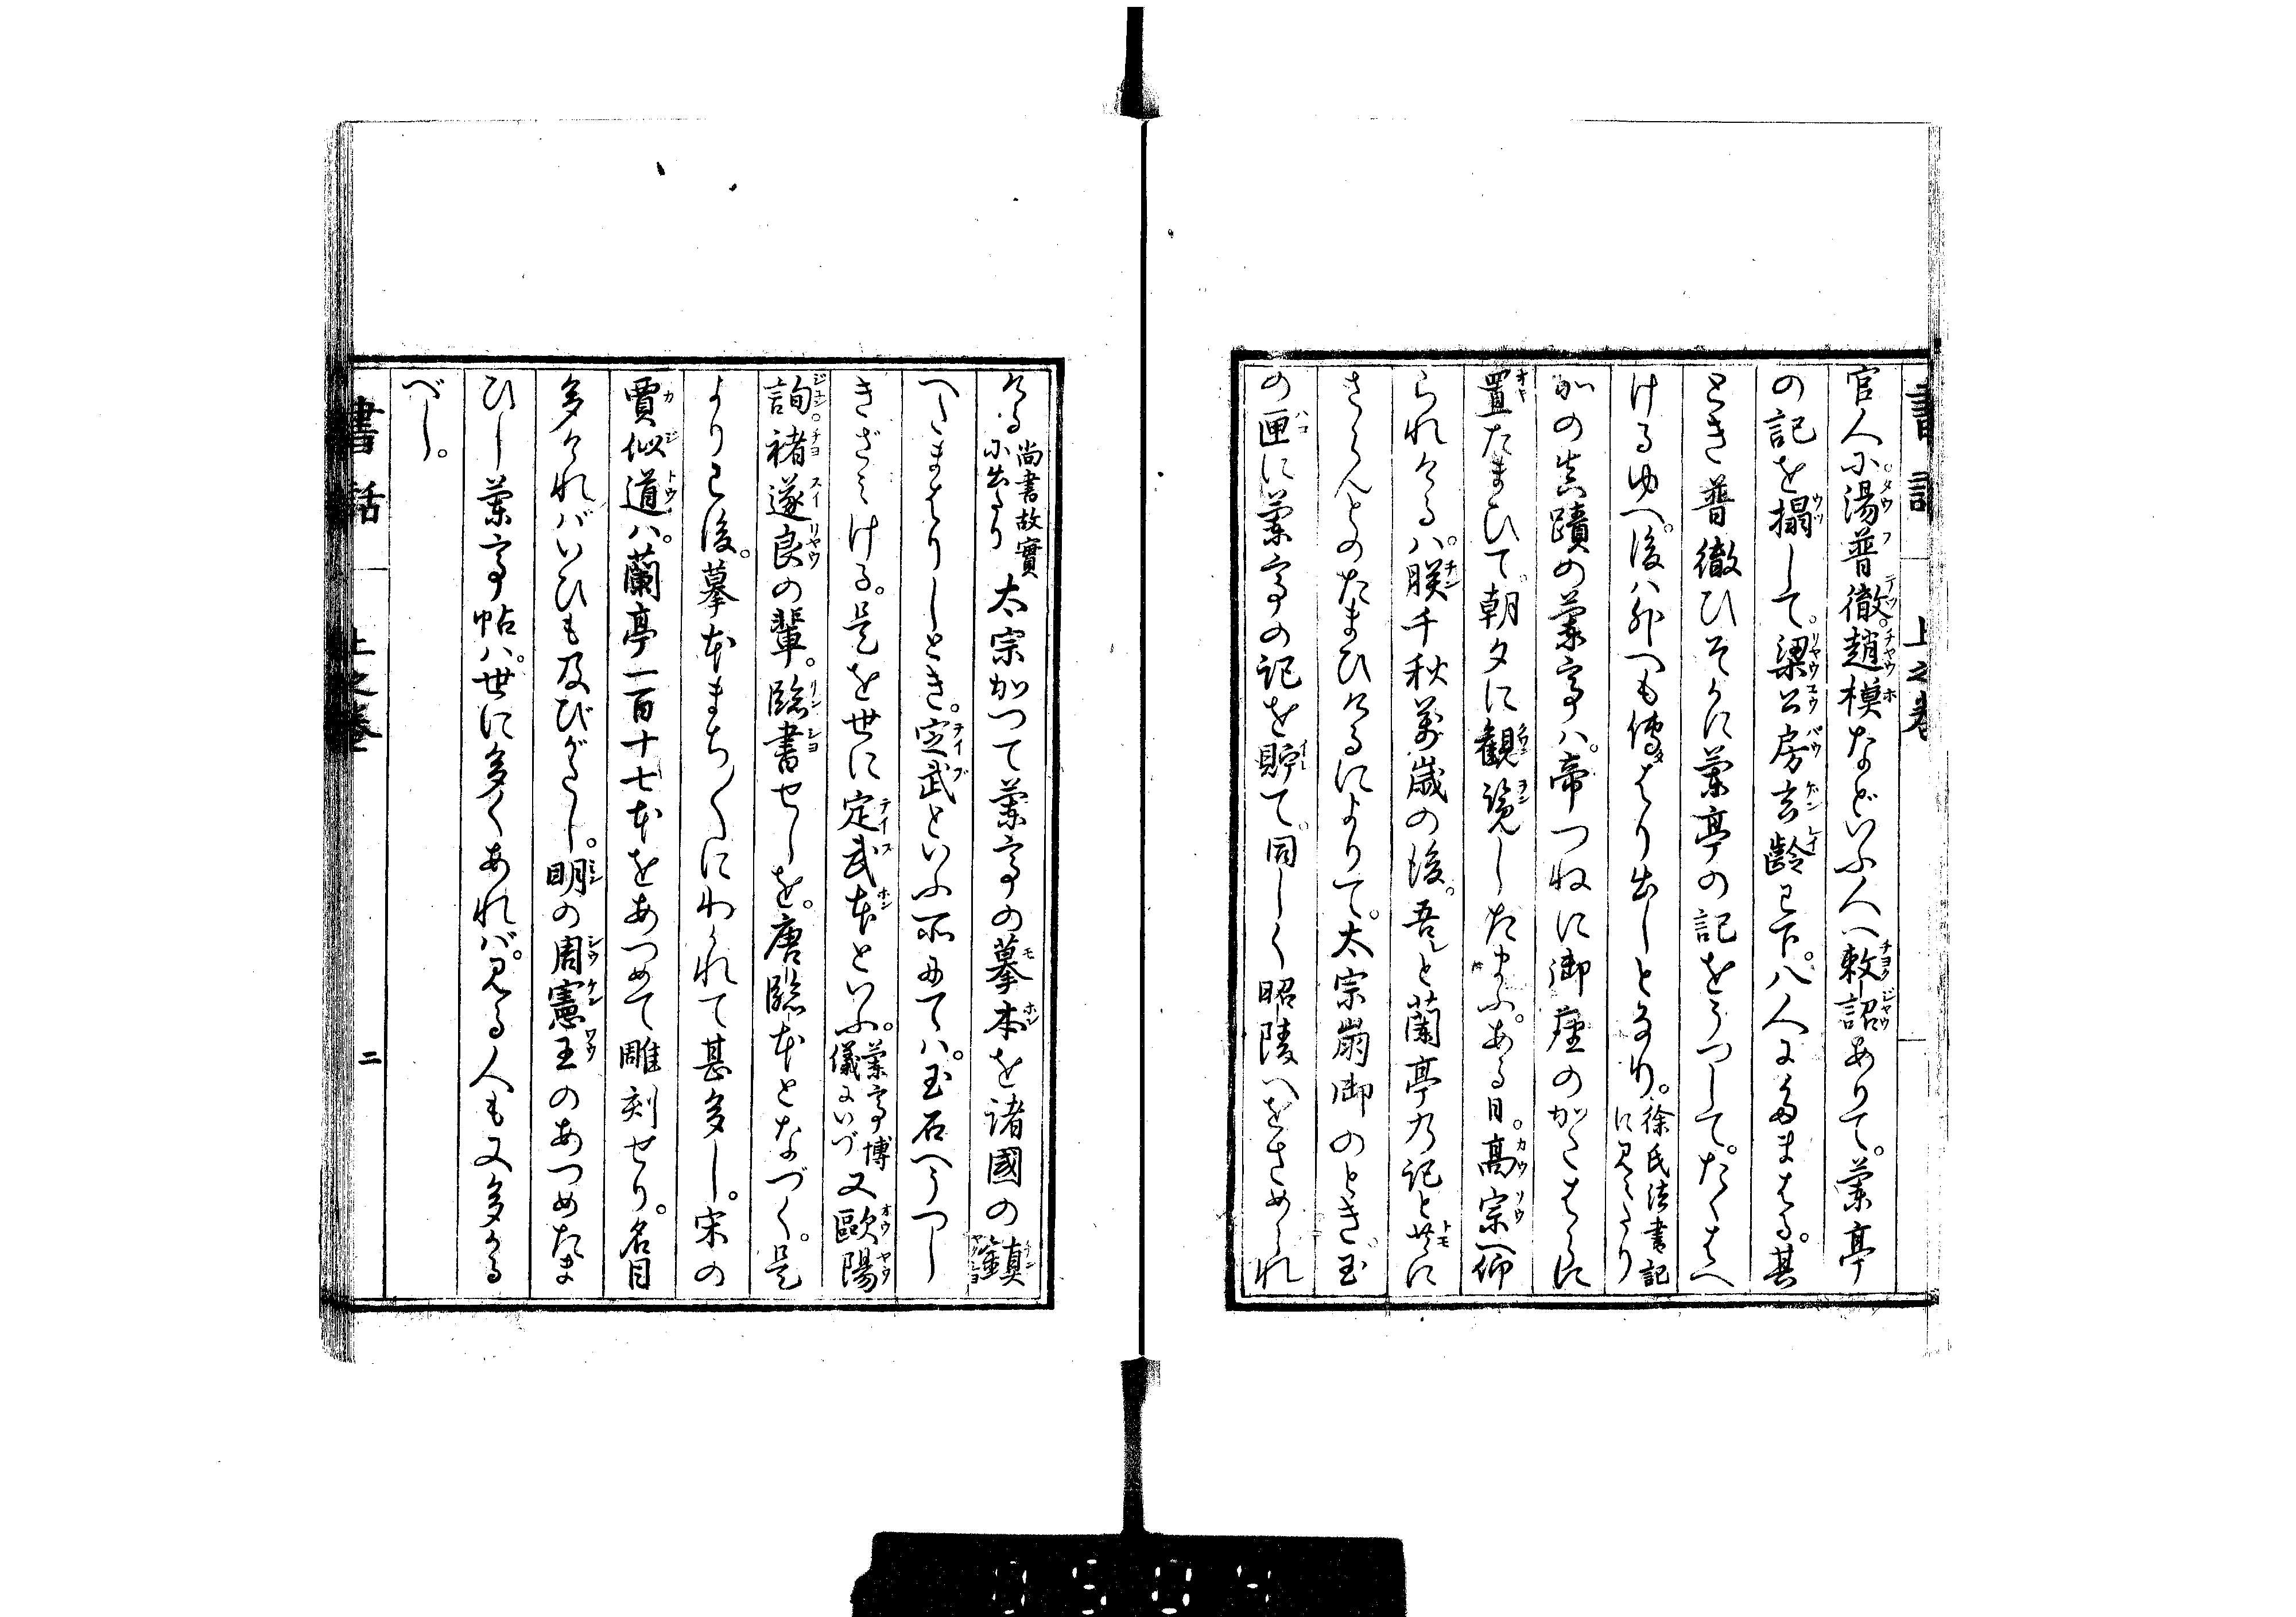 書話　上之卷
官人小湯普徹。趙模などいふ人へ敕詔ありて。蘭亭
の記を搨して。梁公房玄齡已下。八人にたまはる。其
とき普徹ひそかに蘭亭の記をうつして。たくはへ
けるゆへ。後ハ外へも傳はり出しとなり。徐氏法書記に見へたり
かの真蹟の蘭亭ハ。帝つねに御座のかたはらに
置たまひて。朝夕に観覧したまふ。ある日。高宗へ仰
られけるハ。朕千秋萬歳の後。吾と蘭亭乃記と共に
さらんとのたまひけるによりて。太宗崩御のとき玉
の匣に蘭亭の記を貯て。同しく昭陵へをさめられ
ける尚書故實に出たり太宗かつて蘭亭の摹本を諸國の鎮
へたまはりしとき。定武といふ所にてハ。玉石へうつし
きざみける。是を世に定武本といふ。蘭亭博儀にいづ又歐陽
詢。褚遂良の輩。臨書せしを。唐臨本となづく。是
より已後。摹本まち〱にわかれて甚多し。宋の
賈似道ハ。蘭亭一百十七本をあつめて雕刻せり。名目
多ければいひも及びがたし。明の周憲王のあつめたま
ひし蘭亭帖ハ。世に多くあれバ。見る人も又多かる
べし。
書話　上之卷　二